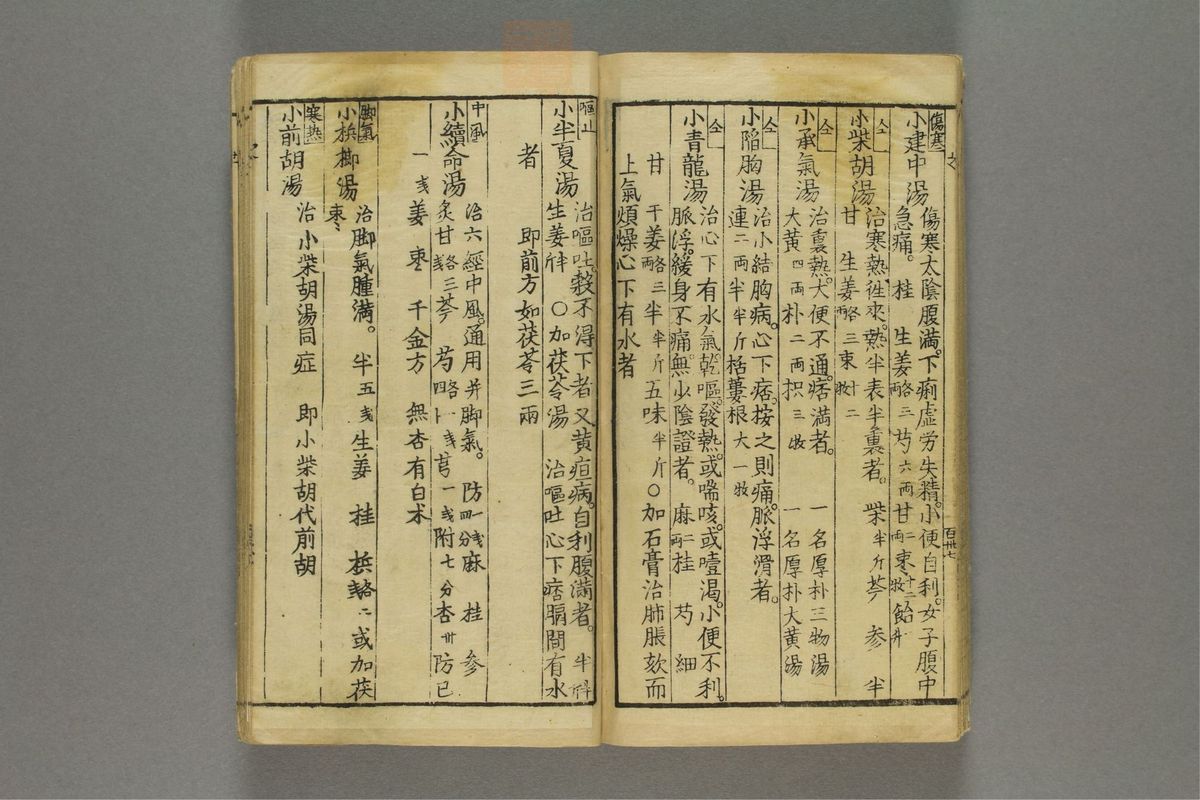 傷寒
小建中湯
傷寒太陰腹満。下痢虚労失精。小便自利。女子腹中
急痛。桂 生姜两各三芍六両甘二両枣十二牧飴升
仝
小柴胡湯
治寒熱徃來。熱半表半裏者。柴半斤芩 参 半
甘 生姜两各三枣十二牧
仝
小承氣湯
治裏熱。大便不通。痞満者。 一名厚朴三物湯
大黄四両朴二両炽三牧 一名厚朴大黄湯
仝
小陷胸湯
治小結胸病。心下痞。按之則痛。脈浮滑者。
連二両半半斤栝蔞根大一牧
仝
小青龍湯
治心下有水氣。乾嘔。發熱。或喘咳。或噎渴。小便不利。
脈浮。緩身不痛。無少陰證者。 麻二両桂 芍 細
甘 干姜两各三半半斤五味半斤○加石膏治肺脹欬而
上氣煩燥心下有水者
百卅七
嘔止
小半夏湯
治嘔吐。穀不得下者又黄疸病。自利腹満者。 半
生姜 ○加茯苓湯 治嘔吐心下痞膈間有水
者 即前方如茯苓三兩
中風
小續命湯
治六經中風。通用并脚氣。 防一戔四分麻 桂 参
炙甘戔各三芩 芍各四卜戔芎一戔附七分杏卅防已
一戔姜 枣 千金方 無杏有白术
脚氣
小梹榔湯
治脚氣腫満。 半五戔生姜 桂 梹各二或加茯
枣
寒热
小前胡湯
治小柴胡湯同症 即小柴胡代前胡